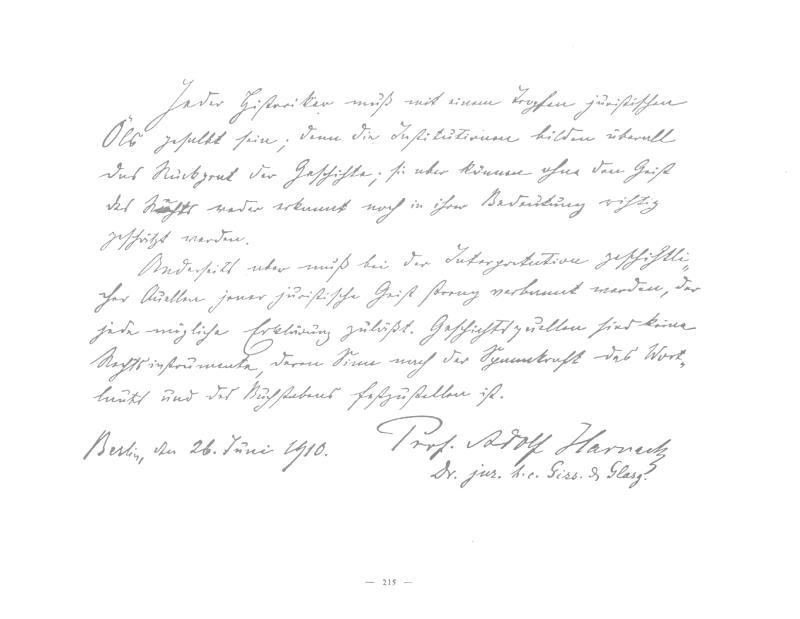 Jeder Historiker muß mit einem Tropfen juristischen
Öls gesalbt sein; denn die Institutionen bilden überall
das Rückgrat der Geschichte; sie aber können ohne den Geist
des Rechts weder erkannt noch in ihrer Bedeutung richtig
geschätzt werden.
Anderseits aber muß bei der Interpretation geschichtli-
cher Quellen jener juristische Geist streng verbannt werden, der
jede mögliche Erklärung zuläßt. Geschichtsquellen sind keine
Rechtsinstrumente, deren Sinn nach der Spannkraft des Wort-
lauts und des Buchstabens festzustellen ist.
Berlin, den 26. Juni 1910. Prof. Adolf Harnack
Dr. jur. h. c. Giss. & Glasg.
— 215 —